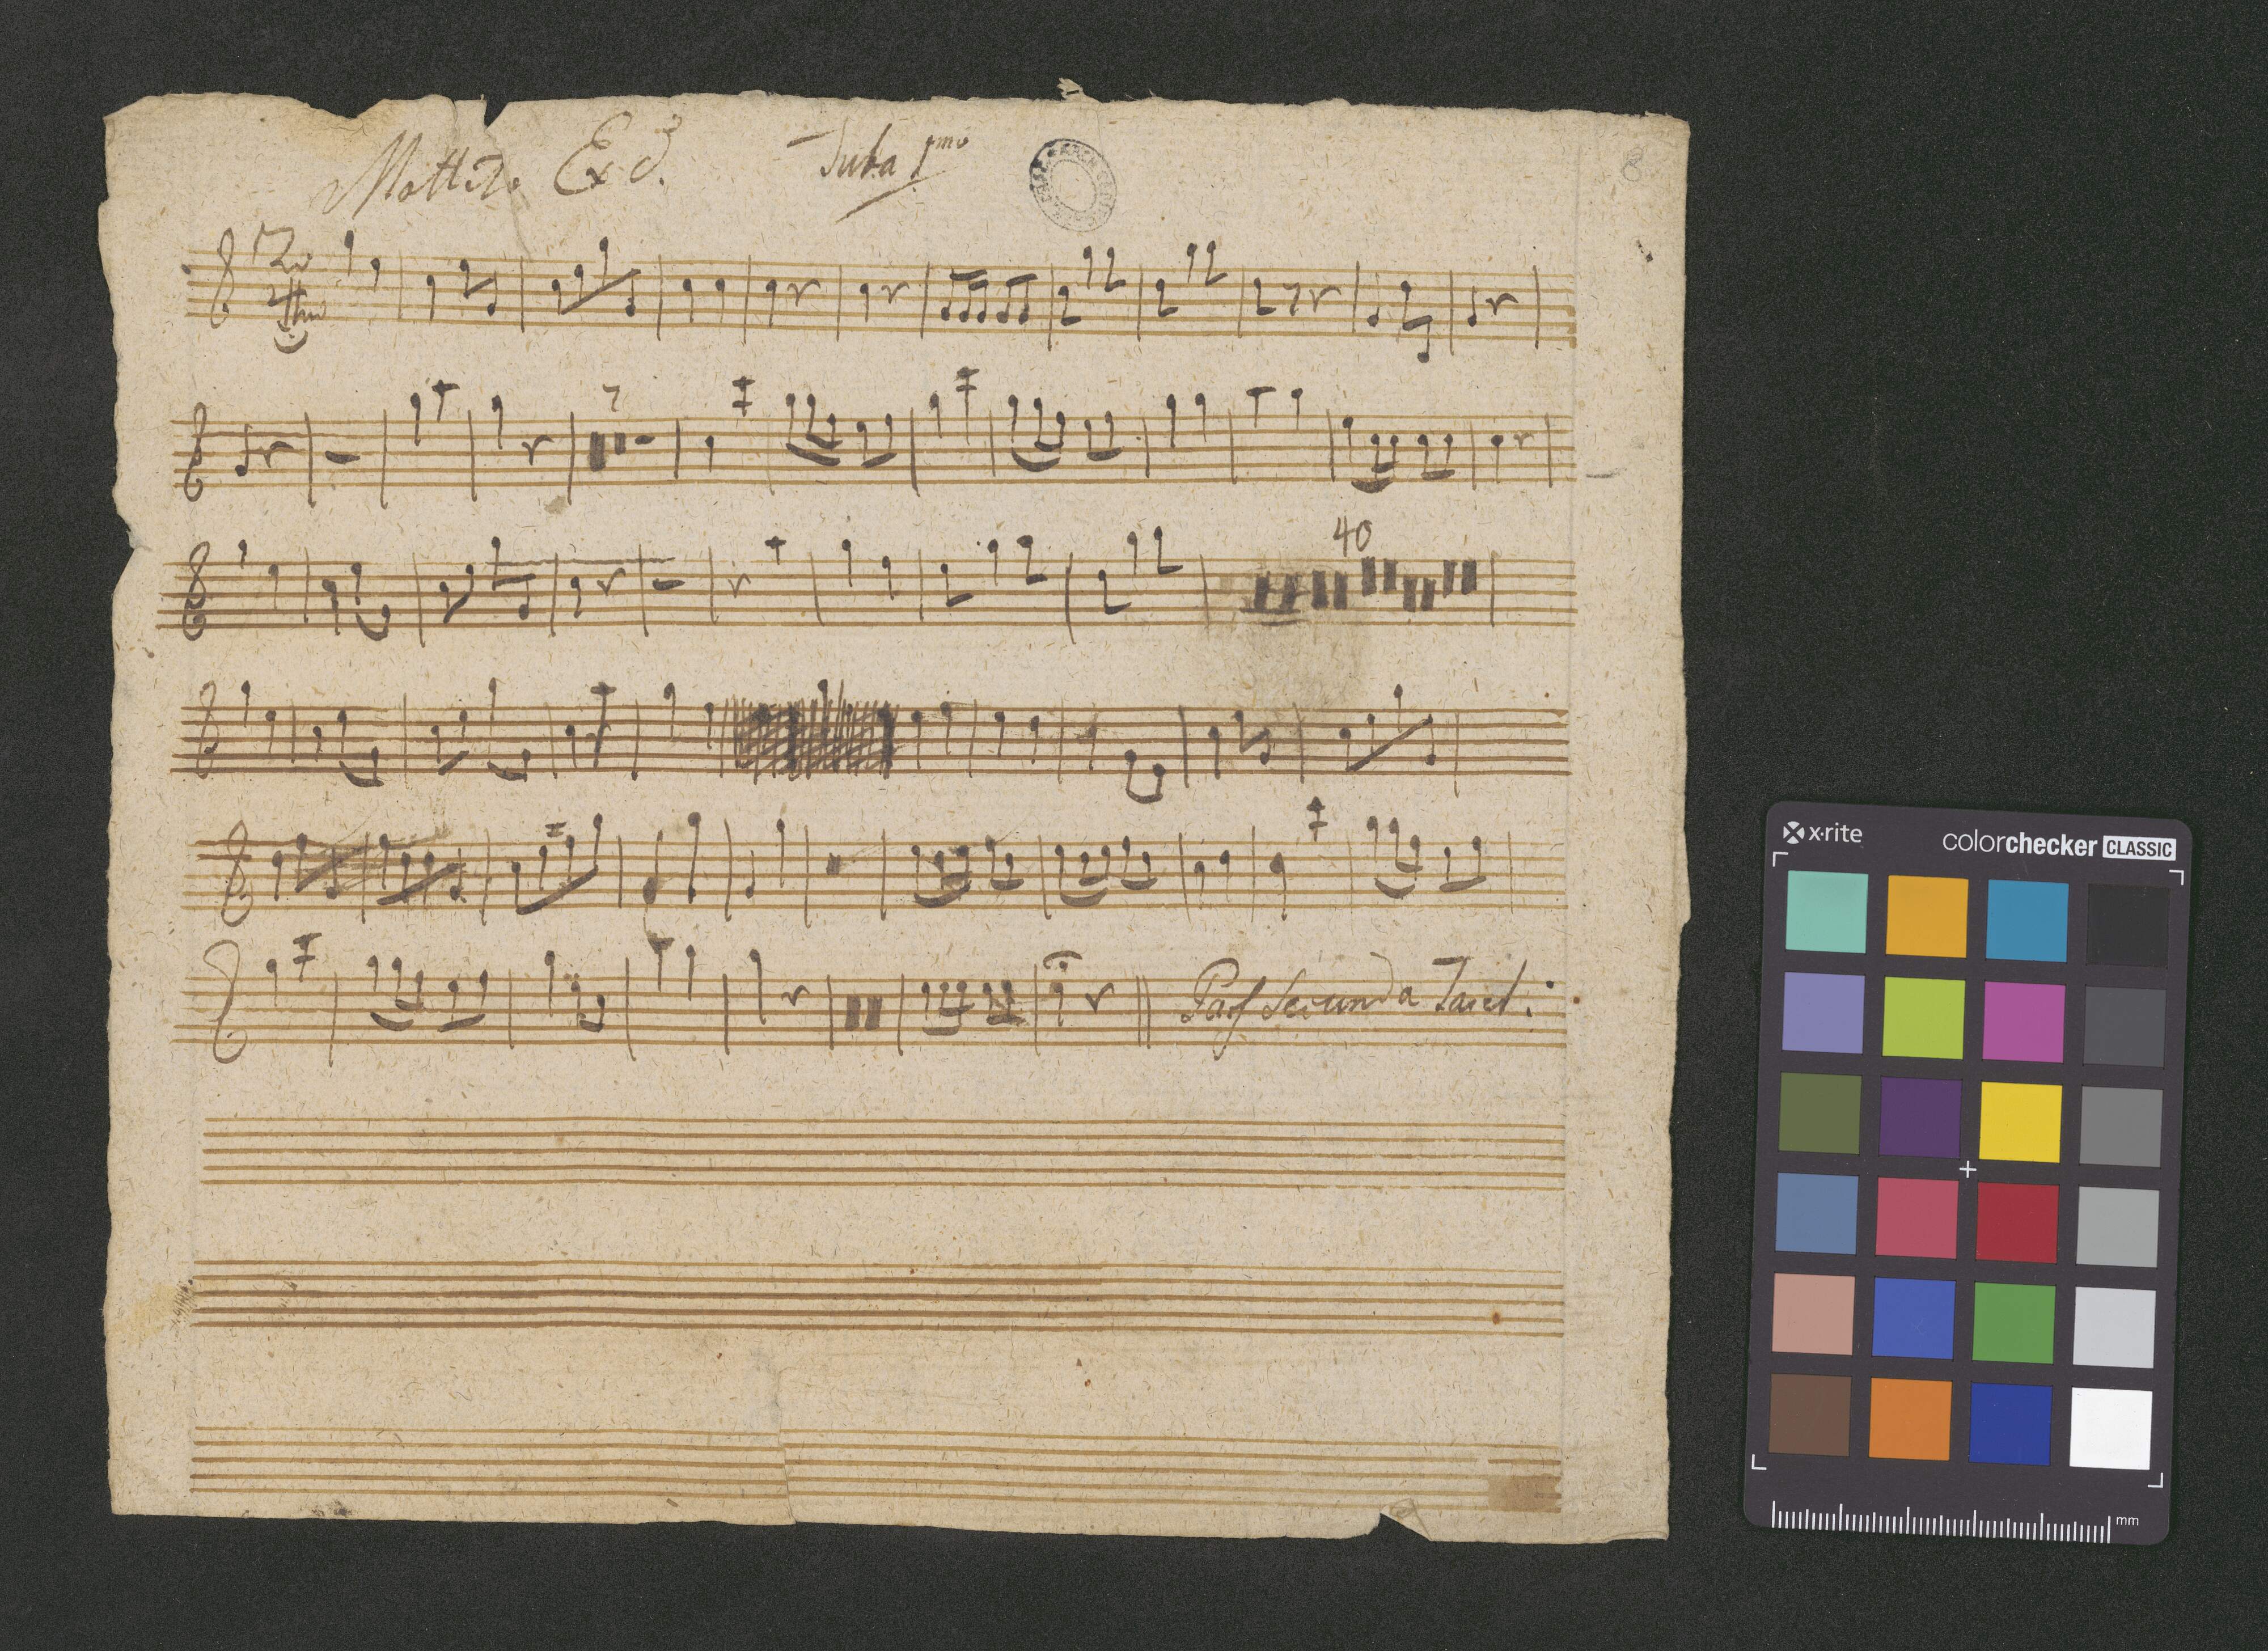 Ex d. Tuba 1mo
8
7
40
Pars Secunda Tacet.
x·rite colorchecker CLASSIC
mm